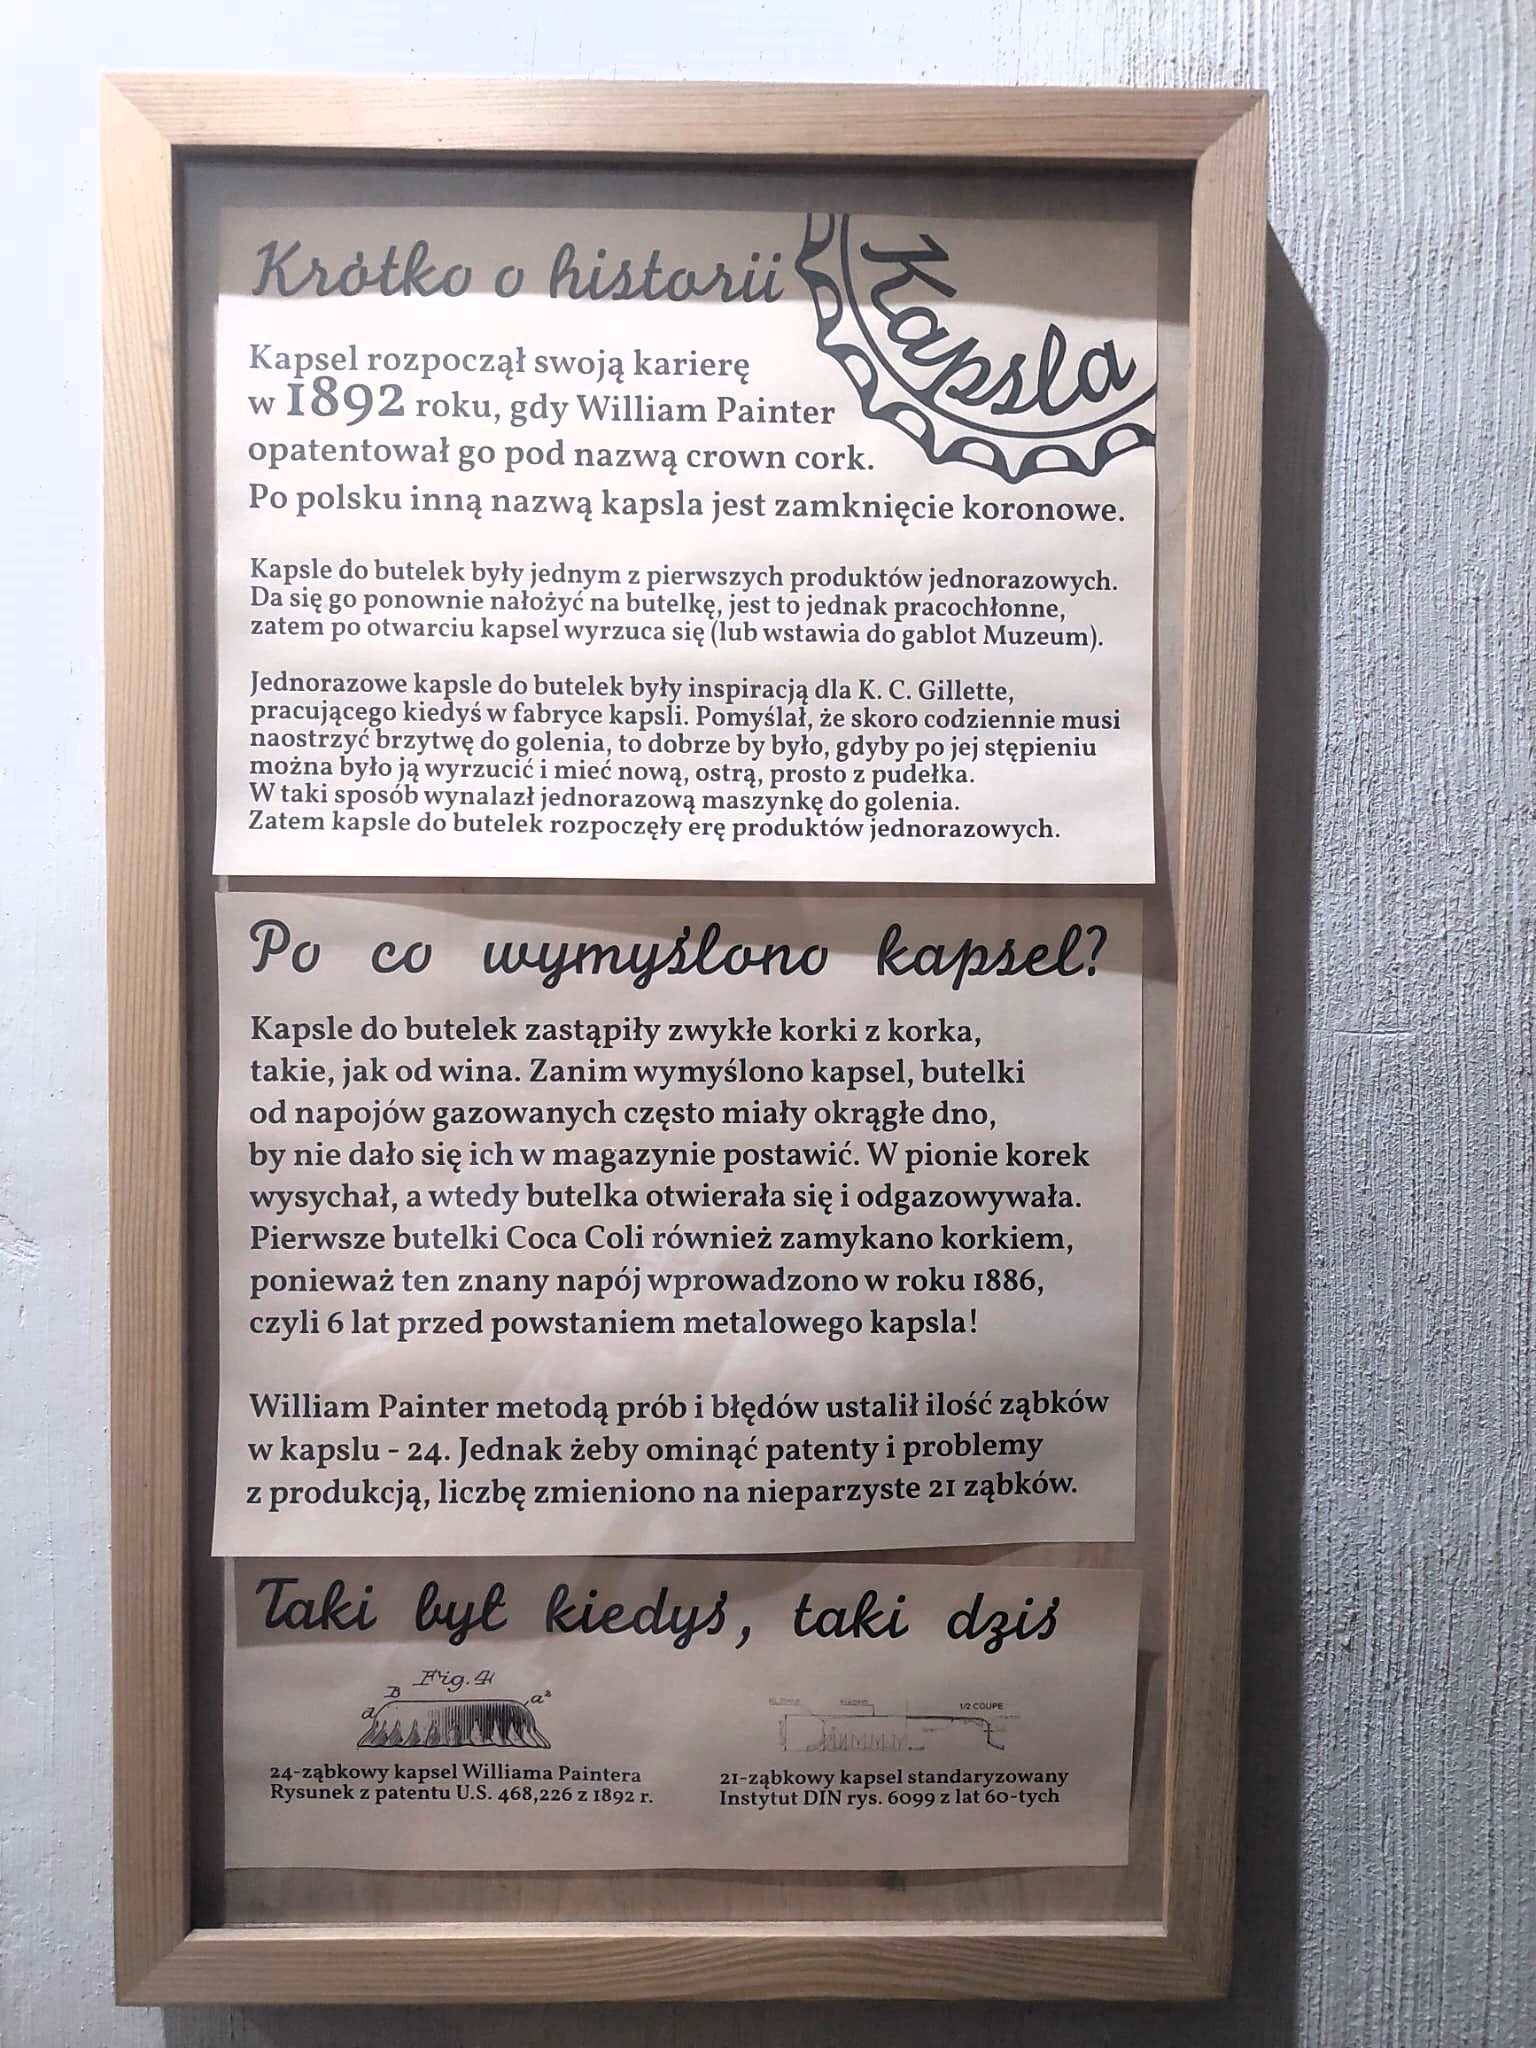 Krótko o historii
Kapsla
Kapsel rozpoczął swoją karierę
w 1892 roku, gdy William Painter
opatentował go pod nazwą crown cork.
Po polsku inną nazwą kapsla jest zamknięcie koronowe.
Kapsle do butelek były jednym z pierwszych produktów jednorazowych.
Da się go ponownie nałożyć na butelkę, jest to jednak pracochłonne,
zatem po otwarciu kapsel wyrzuca się (lub wstawia do gablot Muzeum).
Jednorazowe kapsle do butelek były inspiracją dla K. C. Gillette,
pracującego kiedyś w fabryce kapsli. Pomyślał, że skoro codziennie musi
naostrzyć brzytwę do golenia, to dobrze by było, gdyby po jej stępieniu
można było ją wyrzucić i mieć nową, ostrą, prosto z pudełka.
W taki sposób wynalazł jednorazową maszynkę do golenia.
Zatem kapsle do butelek rozpoczęły erę produktów jednorazowych.
Po co wymyślono kapsel?
Kapsle do butelek zastąpiły zwykłe korki z korka,
takie, jak od wina. Zanim wymyślono kapsel, butelki
od napojów gazowanych często miały okrągłe dno,
by nie dało się ich w magazynie postawić. W pionie korek
wysychał, a wtedy butelka otwierała się i odgazowywała.
Pierwsze butelki Coca Coli również zamykano korkiem,
ponieważ ten znany napój wprowadzono w roku 1886,
czyli 6 lat przed powstaniem metalowego kapsla!
William Painter metodą prób i błędów ustalił ilość ząbków
w kapslu - 24. Jednak żeby ominąć patenty i problemy
z produkcją, liczbę zmieniono na nieparzyste 21 ząbków.
Taki był kiedyś, taki dziś
Fig. 4
B
a²
a
1/2 COUPE
24-ząbkowy kapsel Williama Paintera
Rysunek z patentu U.S. 468,226 z 1892 r.
21-ząbkowy kapsel standaryzowany
Instytut DIN rys. 6099 z lat 60-tych